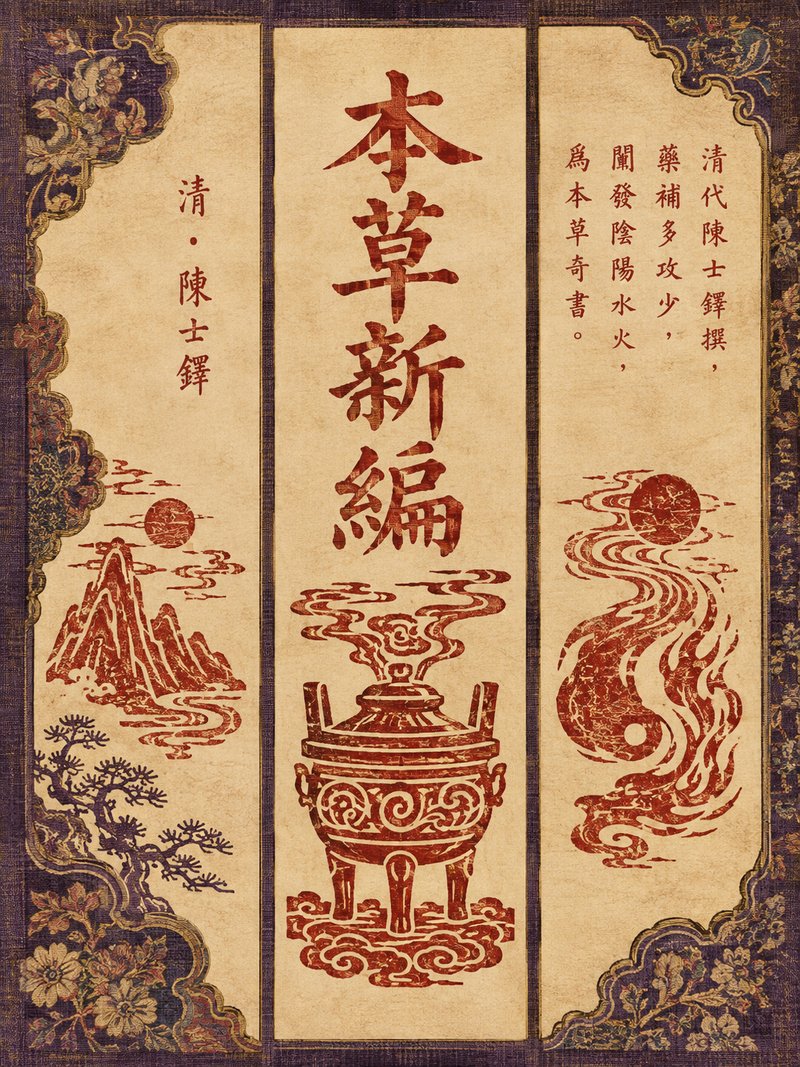 清代陳士鐸撰，
藥補多攻少，
闡發陰陽水火，
爲本草奇書。
本草新編
清·陳士鐸